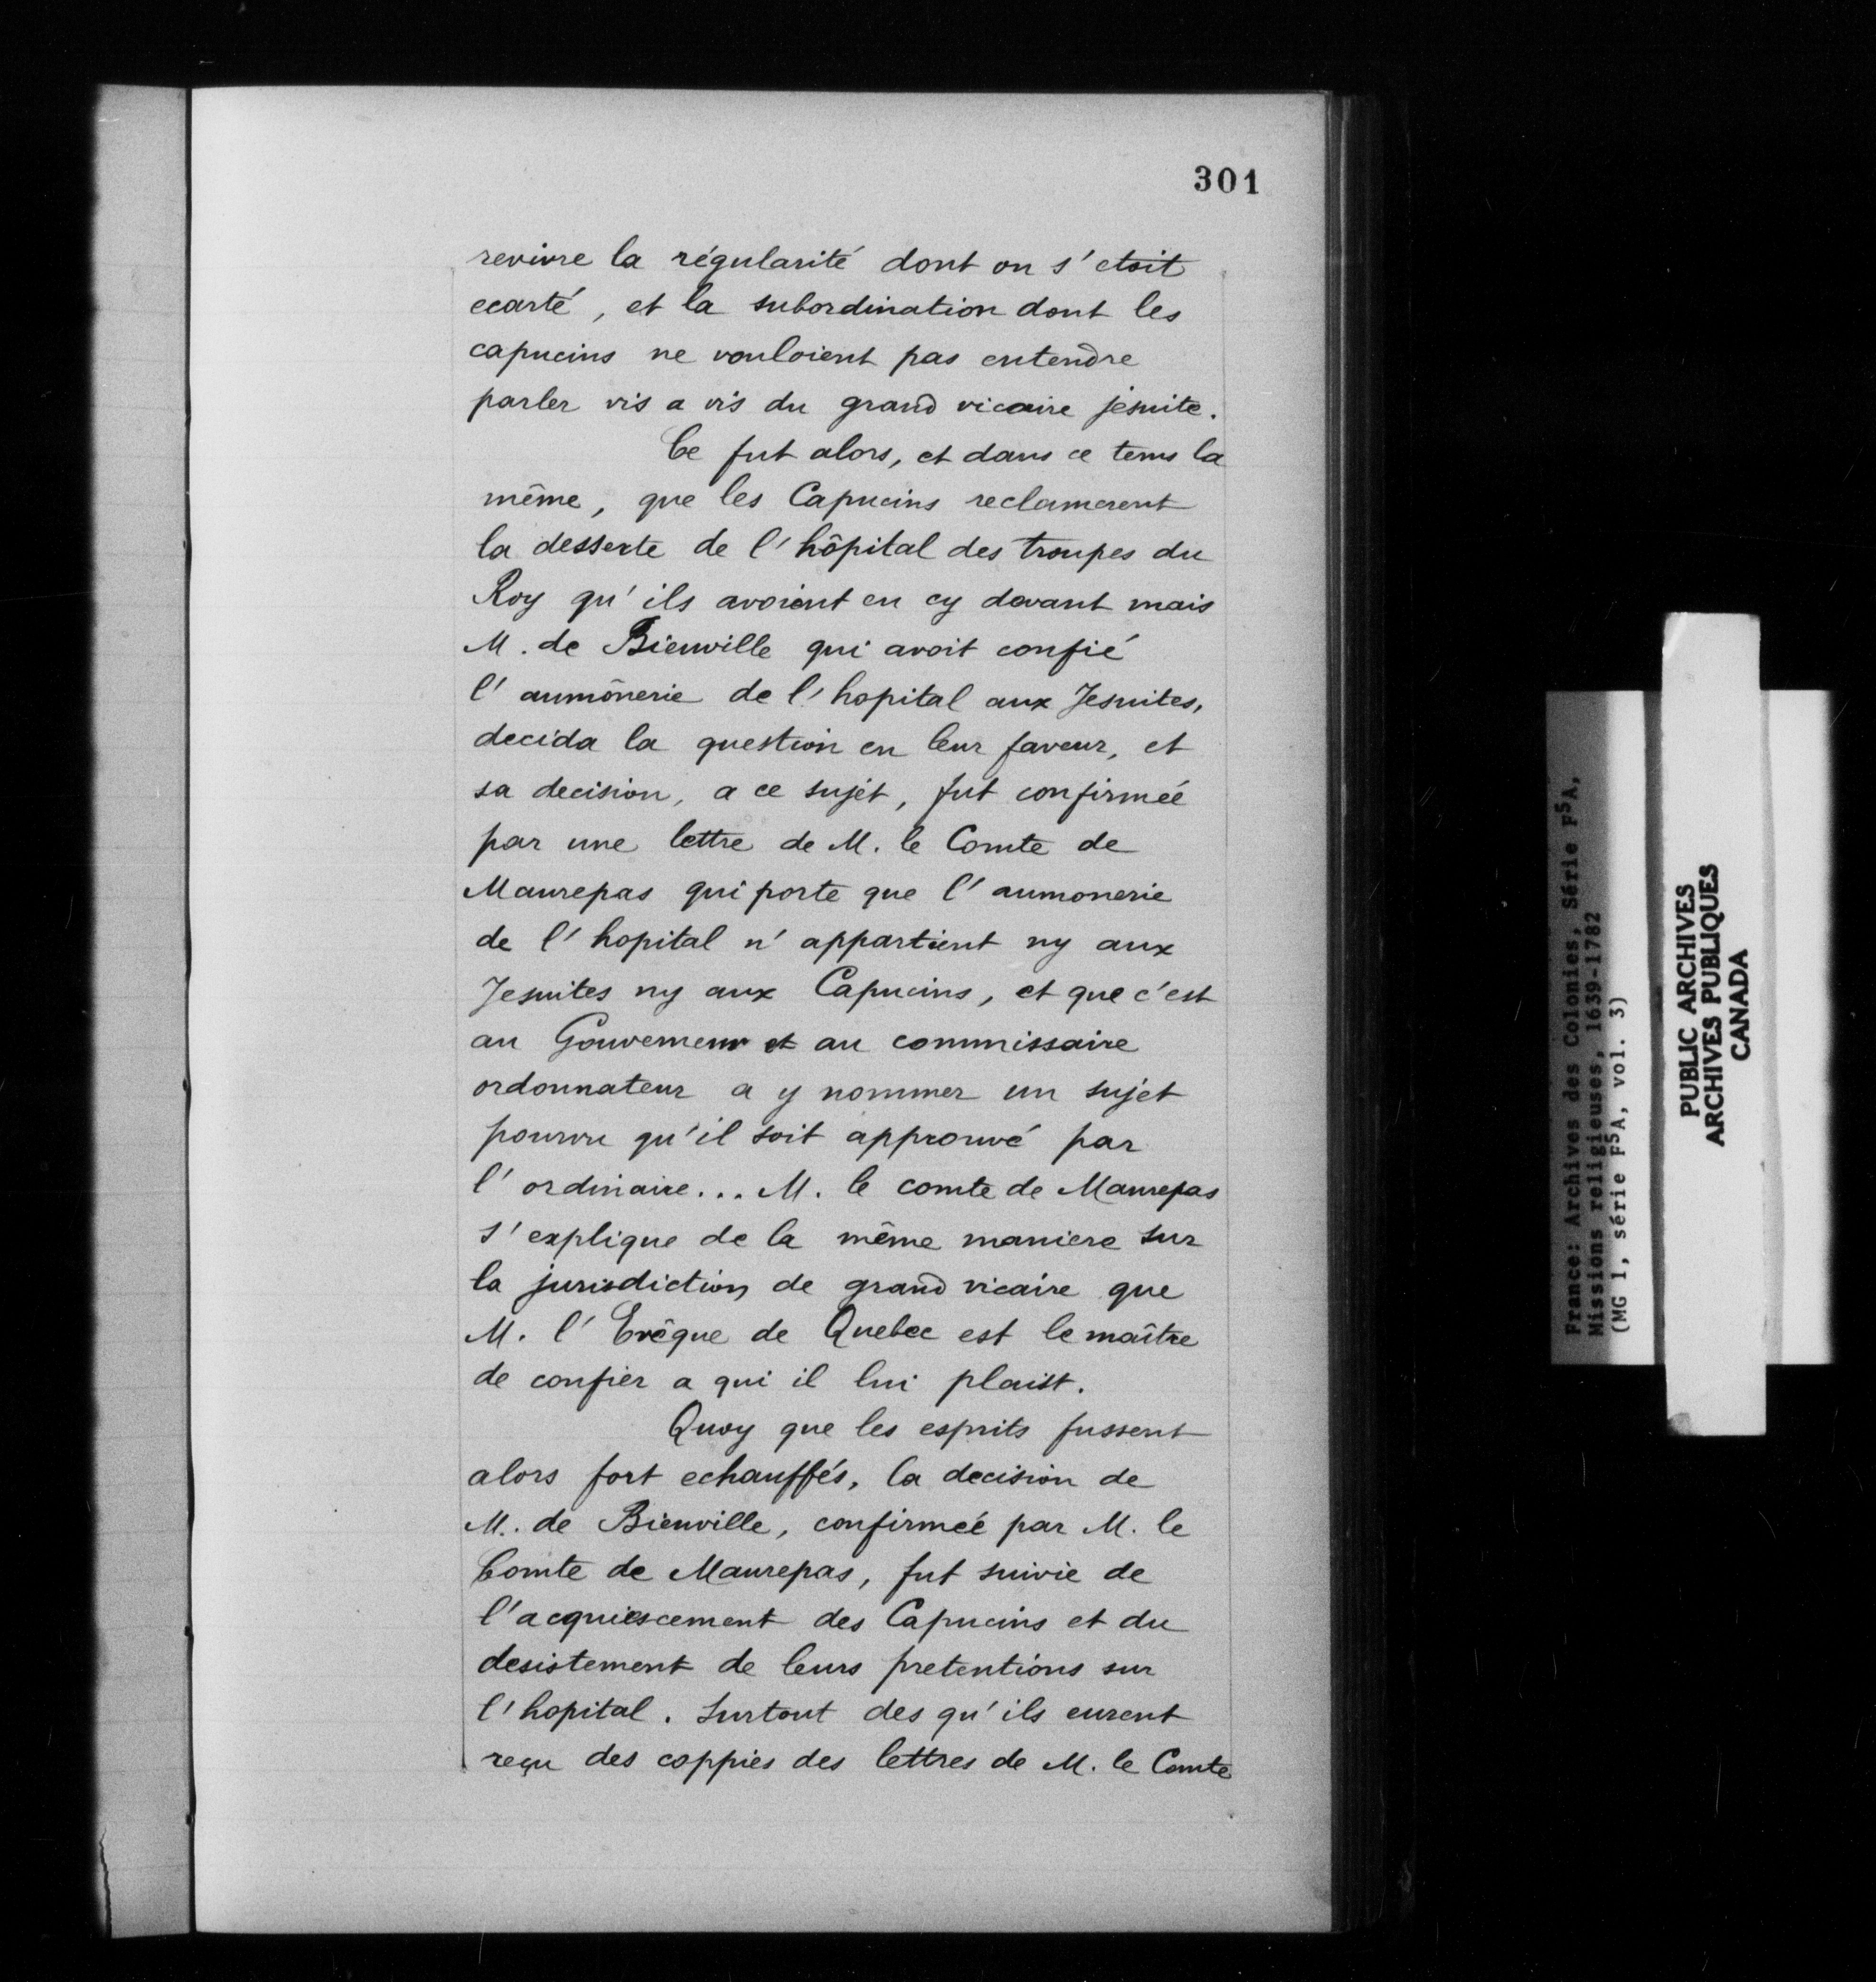 301
revivre la régularité dont on s'etoit
ecarté, et la subordination dont les
capucins ne vouloient pas entendre
parler vis a vis du grand vicaire jesuite.
Ce fut alors, et dans ce tems la
même, que les Capucins reclamerent
la desserte de l'hôpital des troupes du
Roy qu'ils avoient eu cy devant mais
M. de Bienville qui avoit confié
l'aumônerie de l'hopital aux Jesuites,
decida la question en leur faveur, et
sa decision, a ce sujet, fut confirmeé
par une lettre de M. le Comte de
Maurepas qui porte que l'aumonerie
de l'hopital n'appartient ny aux
Jesuites ny aux Capucins, et que c'est
au Gouverneur et au commissaire
ordonnateur a y nommer un sujet
pourvu qu'il soit approuvé par
l'ordinaire... M. le comte de Maurepas
s'explique de la même maniere sur
la jurisdiction de grand vicaire que
M. l'Evêque de Quebec est le maître
de confier a qui il lui plaist.
Quoy que les esprits fussent
alors fort echauffés, la decision de
M. de Bienville, confirmeé par M. le
Comte de Maurepas, fut suivie de
l'acquiescement des Capucins et du
desistement de leurs pretentions sur
l'hopital. Surtout des qu'ils eurent
reçu des coppies des lettres de M. le Comte
France: Archives des Colonies, Série F5A,
Missions religieuses, 1639-1782
(MG 1, série F5A, vol. 3)
PUBLIC ARCHIVES
ARCHIVES PUBLIQUES
CANADA